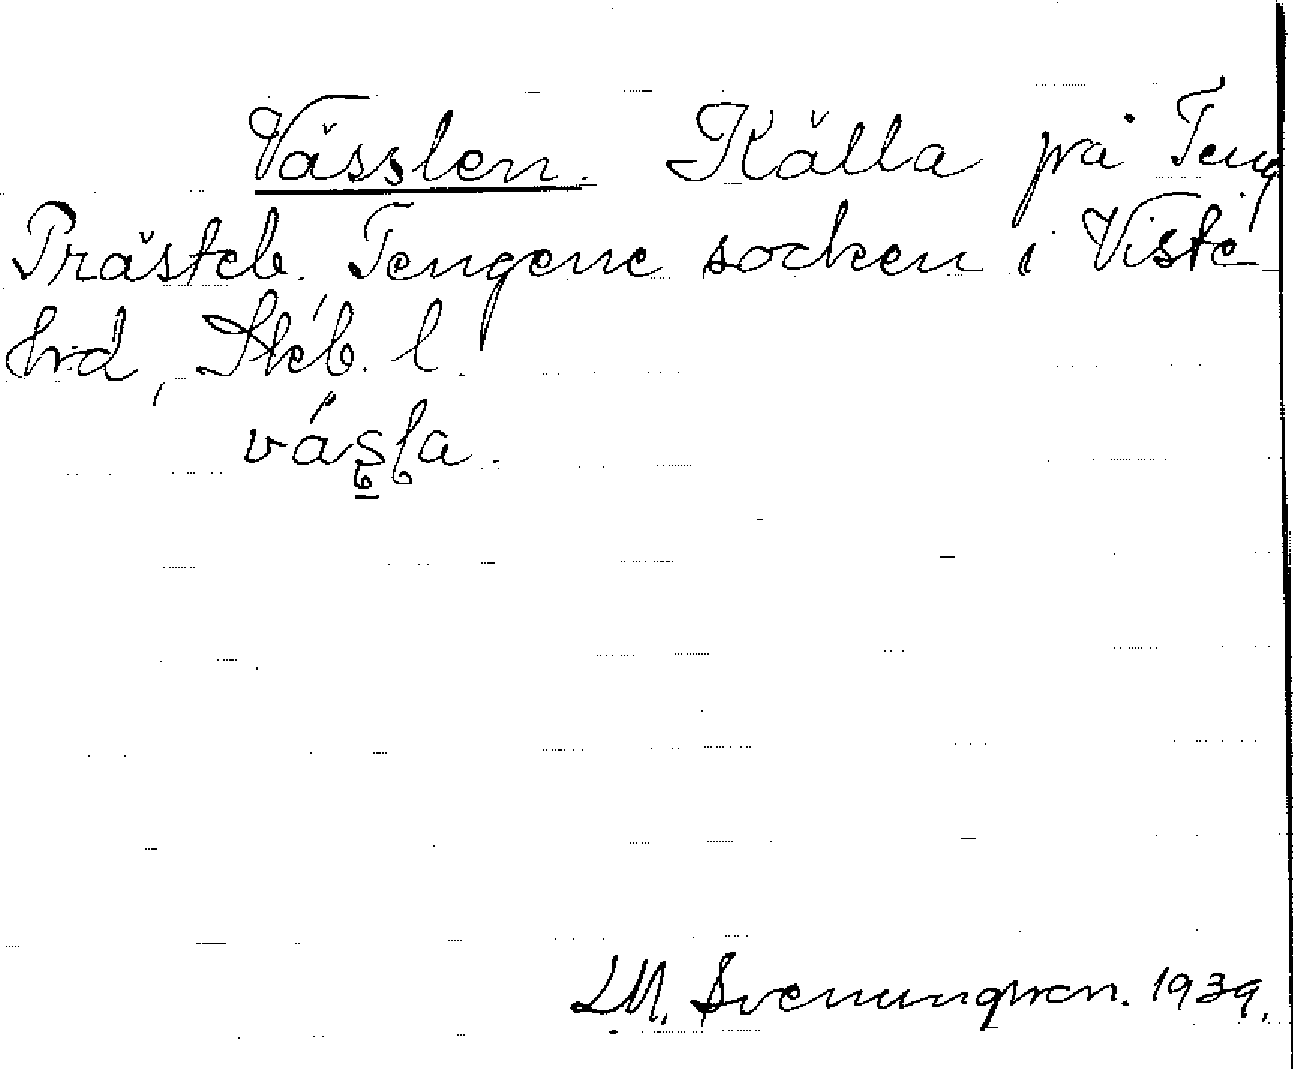 Vässlen. Källa på Teng
Prästeb. Tengene socken i Viste
hrd, Skb. l.
LM. Svenungsson. 1939.